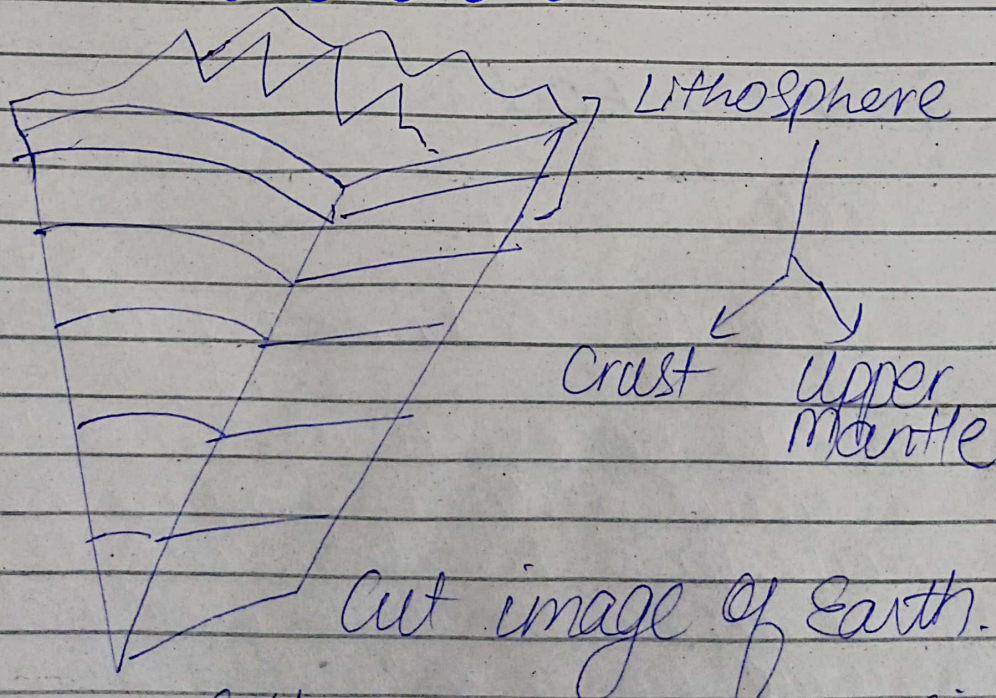 Lithosphere
Crust
Upper
Mantle
Cut image of Earth.